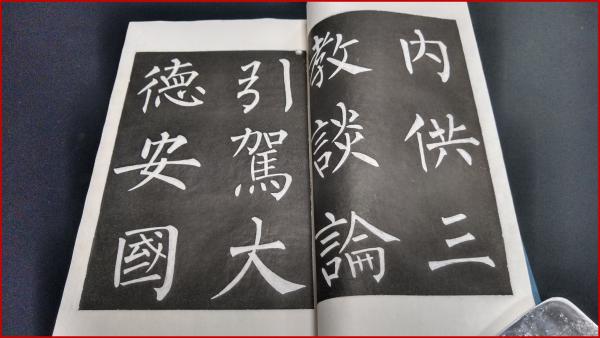 内供三
教談論
引駕大
德安國